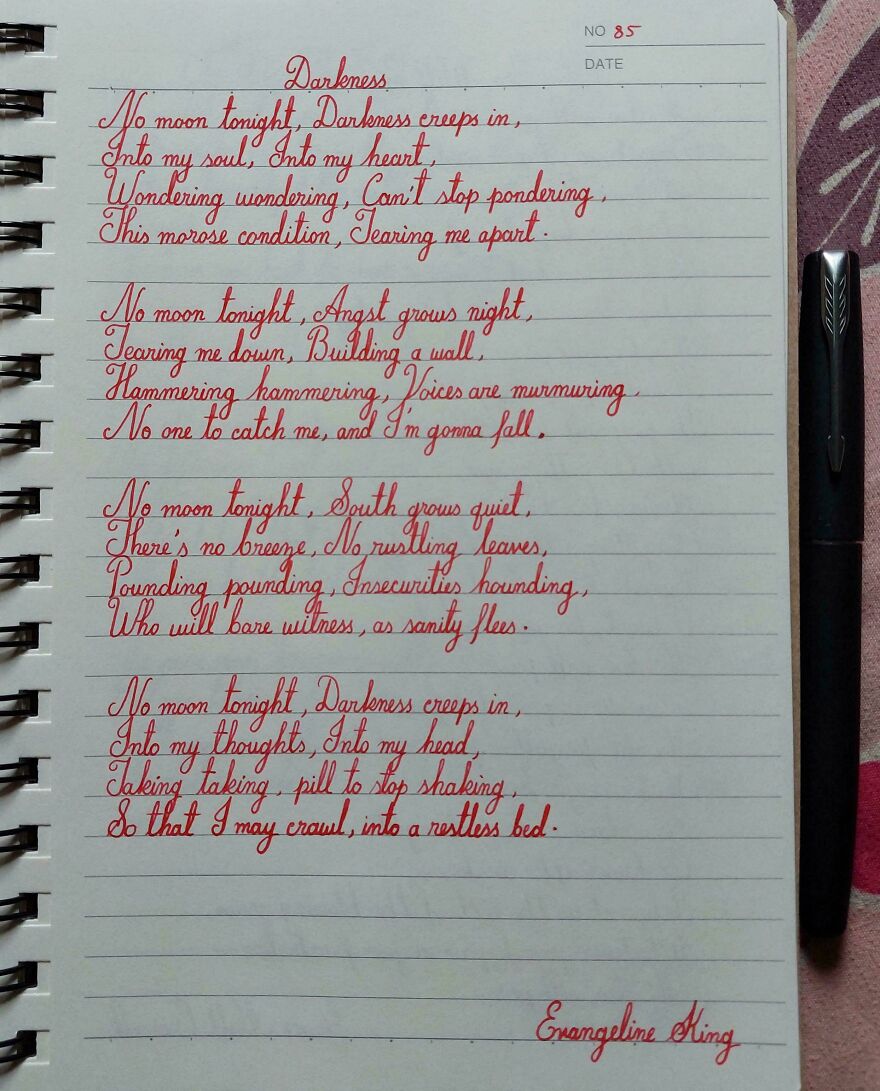 NO 85
DATE
Darkness
No moon tonight, Darkness creeps in,
Into my soul, Into my heart,
Wondering wondering, Can't stop pondering,
This morose condition, Tearing me apart.
No moon tonight, Angst grows night,
Tearing me down, Building a wall,
Hammering hammering, Voices are murmuring,
No one to catch me, and I'm gonna fall.
No moon tonight, South grows quiet,
There's no breeze, No rustling leaves,
Pounding pounding, Insecurities hounding,
Who will bare witness, as sanity flees.
No moon tonight, Darkness creeps in,
Into my thoughts, Into my head,
Taking taking, pill to stop shaking,
So that I may crawl, into a restless bed.
Evangeline King